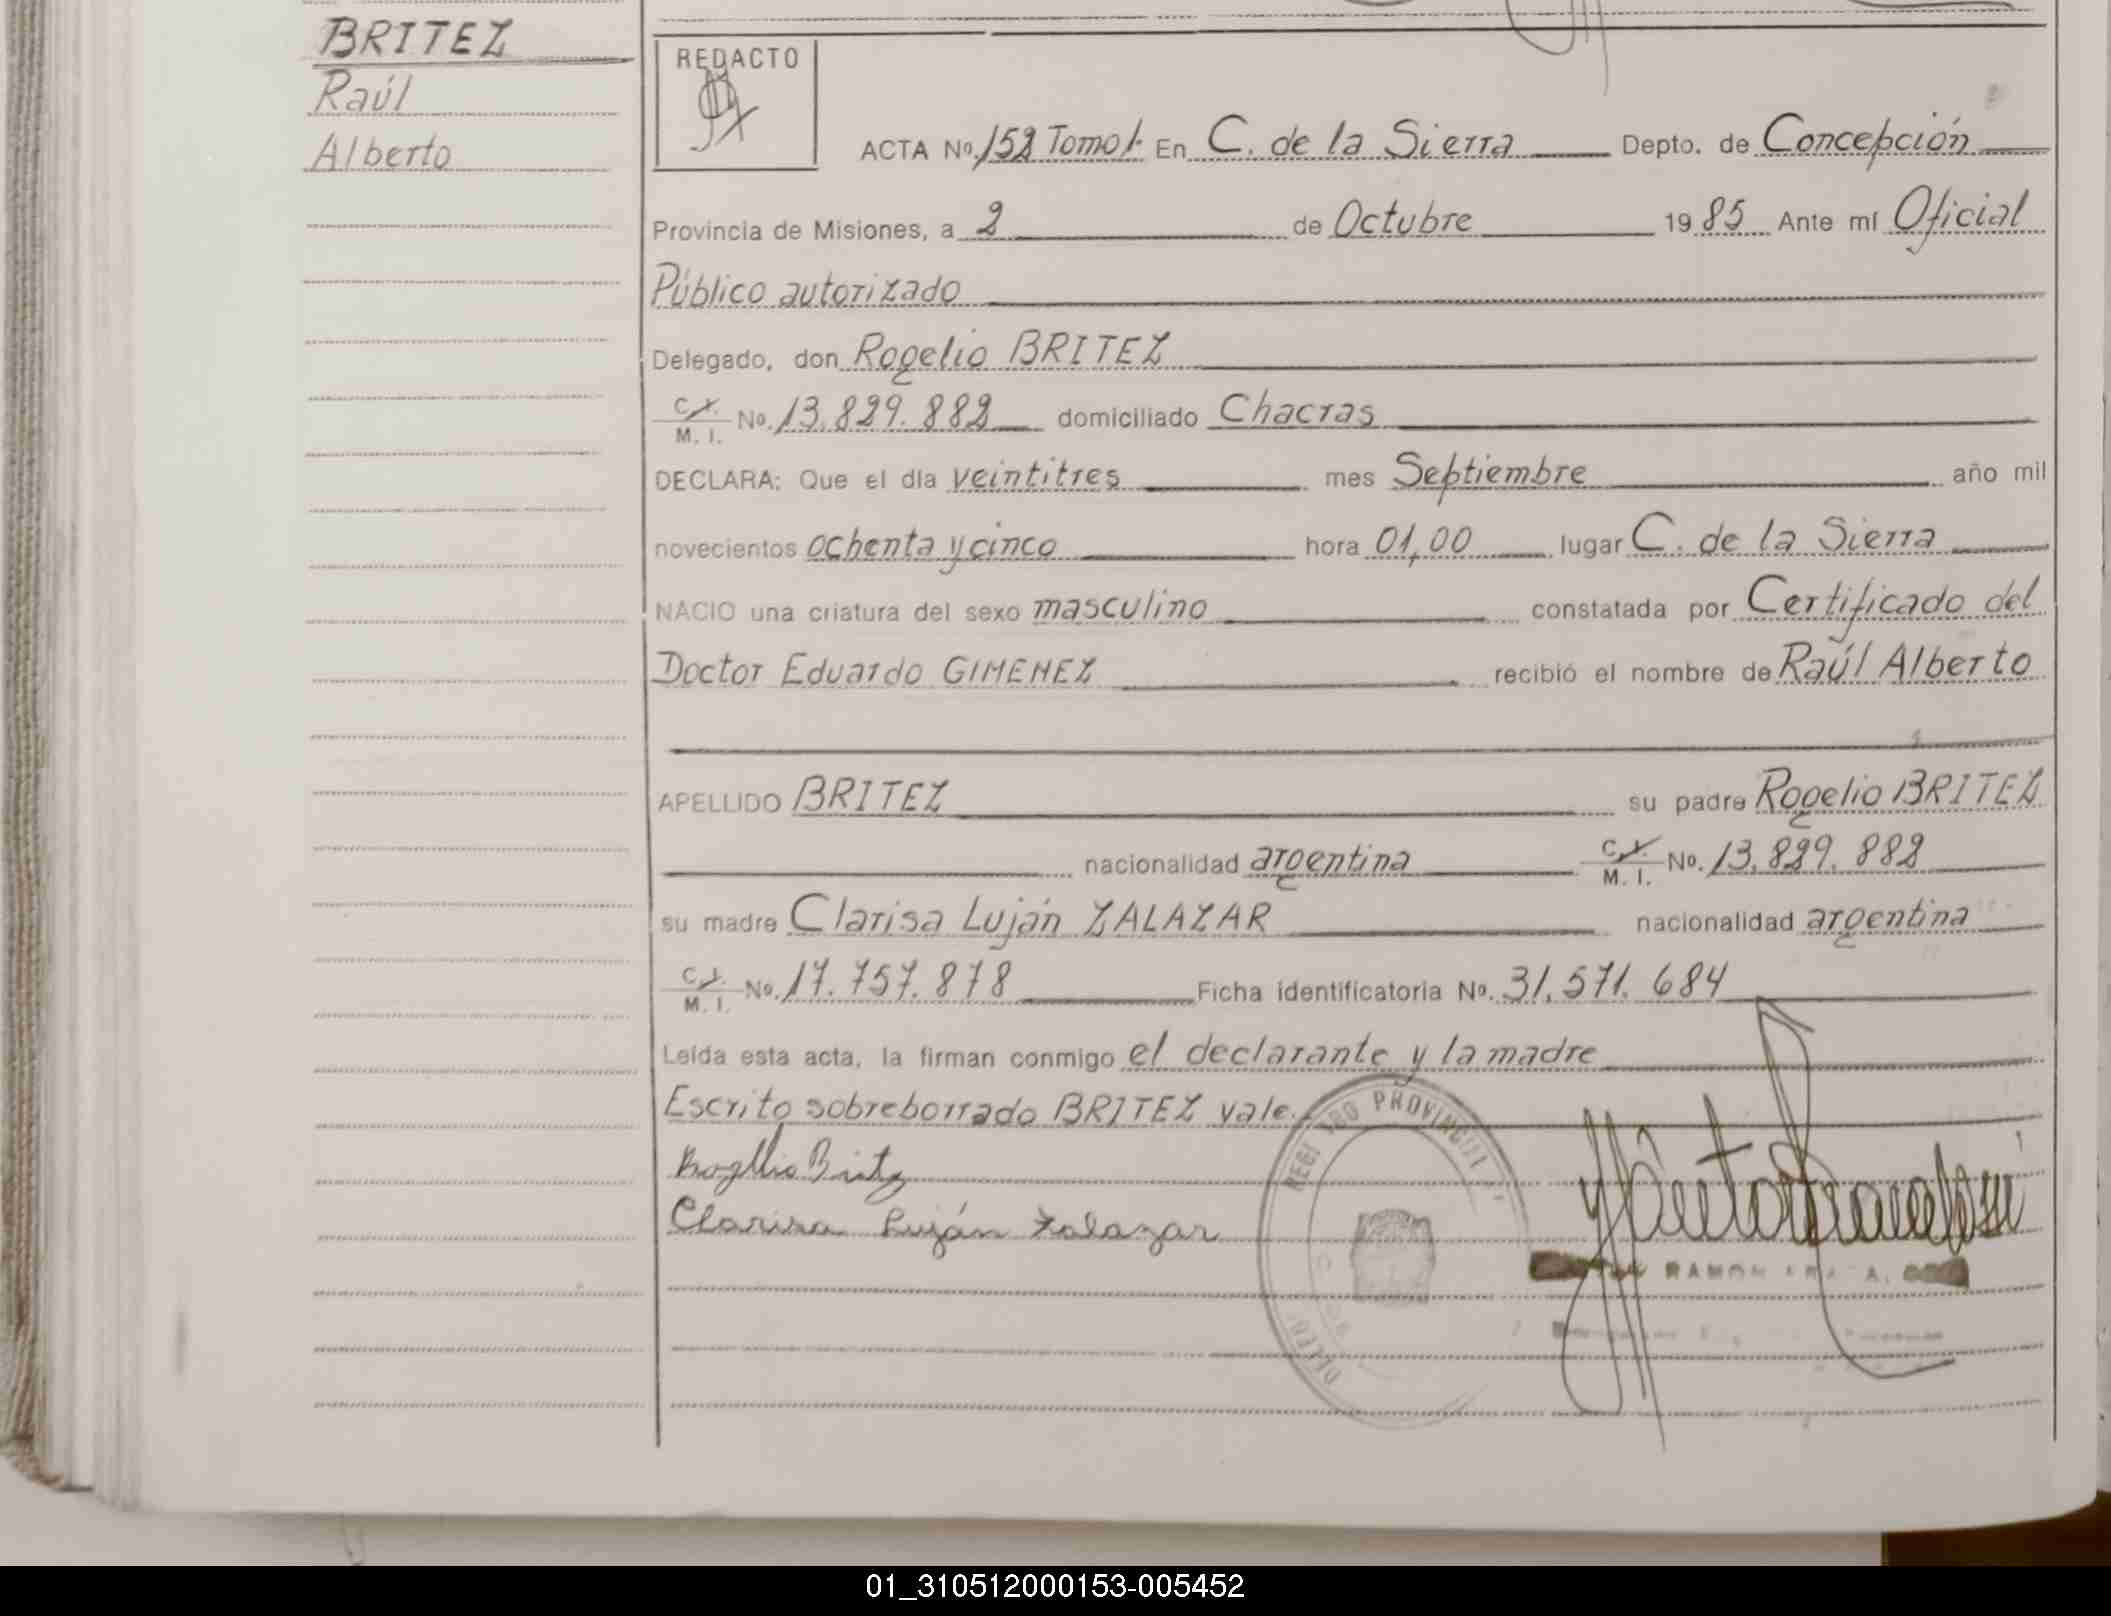 BRITEZ
Raúl
Alberto
REDACTO
ACTA No. 152 Tomo I. En C. de la Sierra Depto. de Concepción
Provincia de Misiones, a 2 de Octubre 1985 Ante mí Oficial
Público autorizado
Delegado, don Rogelio BRITEZ
C. I. M. I. No. 13.829.882 domiciliado Chacras
DECLARA: Que el día veintitres mes Septiembre año mil
novecientos ochenta y cinco hora 01,00 lugar C. de la Sierra
NACIO una criatura del sexo masculino constatada por Certificado del
Doctor Eduardo GIMENEZ recibió el nombre de Raúl Alberto
APELLIDO BRITEZ su padre Rogelio BRITEZ
nacionalidad argentina C. I. M. I. No. 13.829.882
su madre Clarisa Luján ZALAZAR nacionalidad argentina
C. I. M. I. No. 17.757.878 Ficha identificatoria No. 31.571.684
Leída esta acta, la firman conmigo el declarante y la madre
Escrito sobreborrado BRITEZ vale.
Rogelio Britez
Clarisa Luján Zalazar
REGISTRO PROVINCIAL
RAMON
01_310512000153-005452